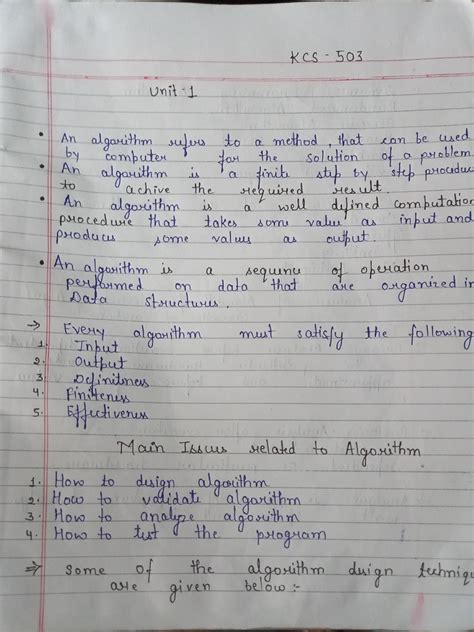 KCS - 503
Unit - 1
• An algorithm refers to a method, that can be used
by computer for the solution of a problem
• An algorithm is a finite step by step procedure
to achive the required result.
• An algorithm is a well defined computation
procedure that takes some value as input and
produces some values as output.
• An algorithm is a sequence of operation
performed on data that are organized in
Data structures.
→ Every algorithm must satisfy the following
1. Input
2. Output
3. Definitness
4. Finiteness
5. Effectiveness
Main Issues related to Algorithm
1. How to design algorithm
2. How to validate algorithm
3. How to analyze algorithm
4. How to test the program
⇒ Some of the algorithm design technique
are given below :-